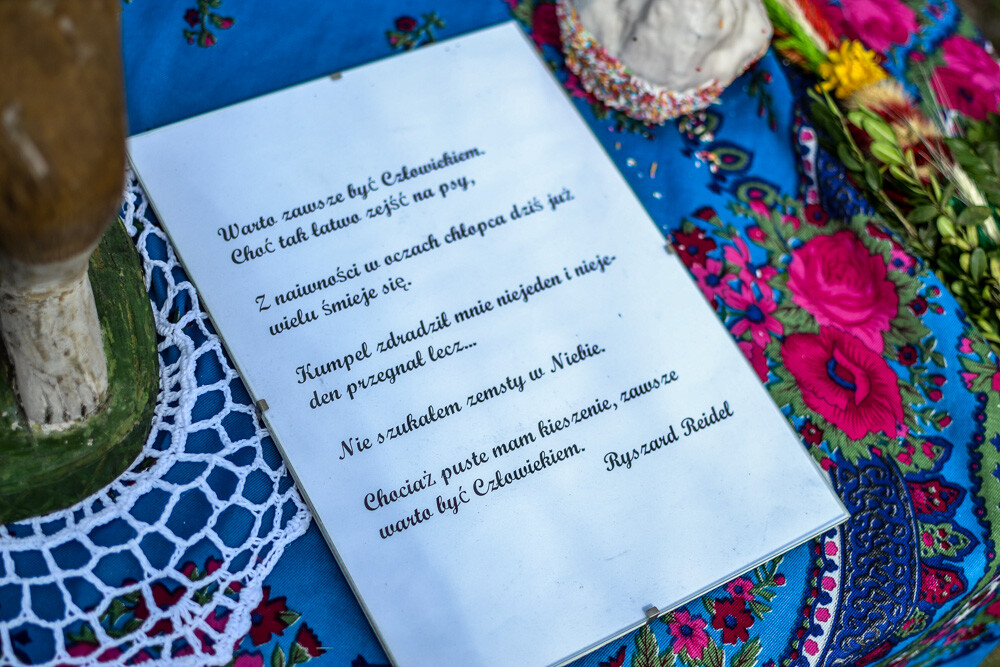 Warto zawsze być Człowiekiem.
Choć tak łatwo zejść na psy,
Z naiwności w oczach chłopca dziś już
wielu śmieje się.
Kumpel zdradził mnie niejeden i nieje-
den przegnał lecz...
Nie szukałem zemsty w Niebie.
Chociaż puste mam kieszenie, zawsze
warto być Człowiekiem.
Ryszard Reidel